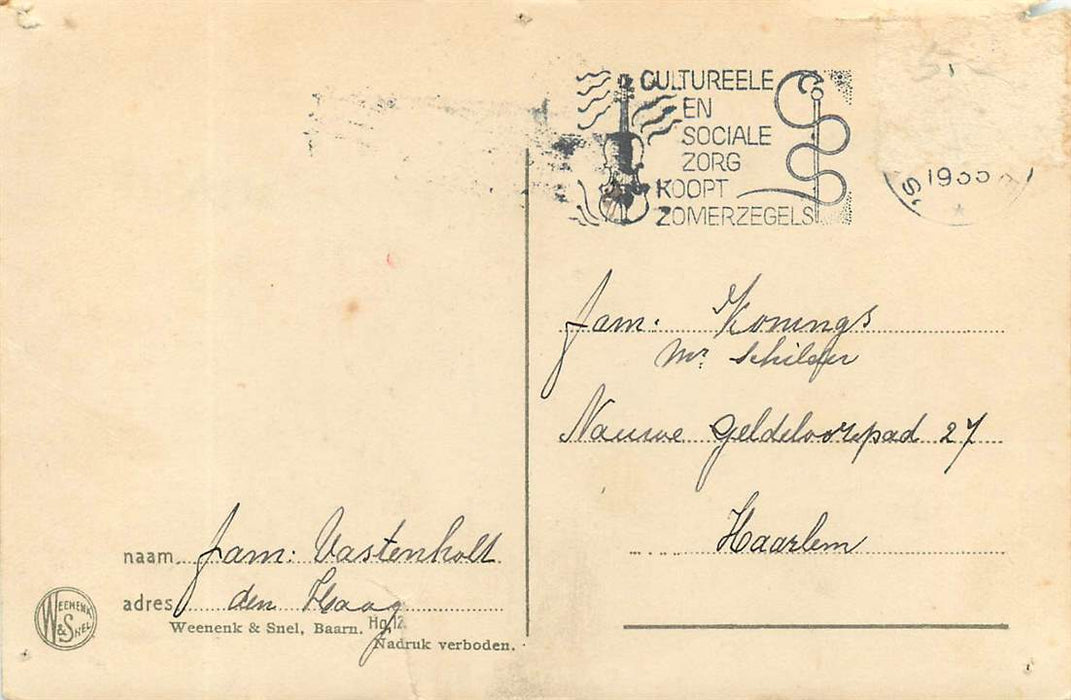 CULTUREELE
EN
SOCIALE
ZORG
KOOPT
ZOMERZEGELS
fam. Konings
Mr. Schilder
Nauwe Geldeloozepad 27
Haarlem
naam fam: Vastenholt
adres den Haag
WEENENK & SNEL
Weenenk & Snel, Baarn. Hg 12
Nadruk verboden.